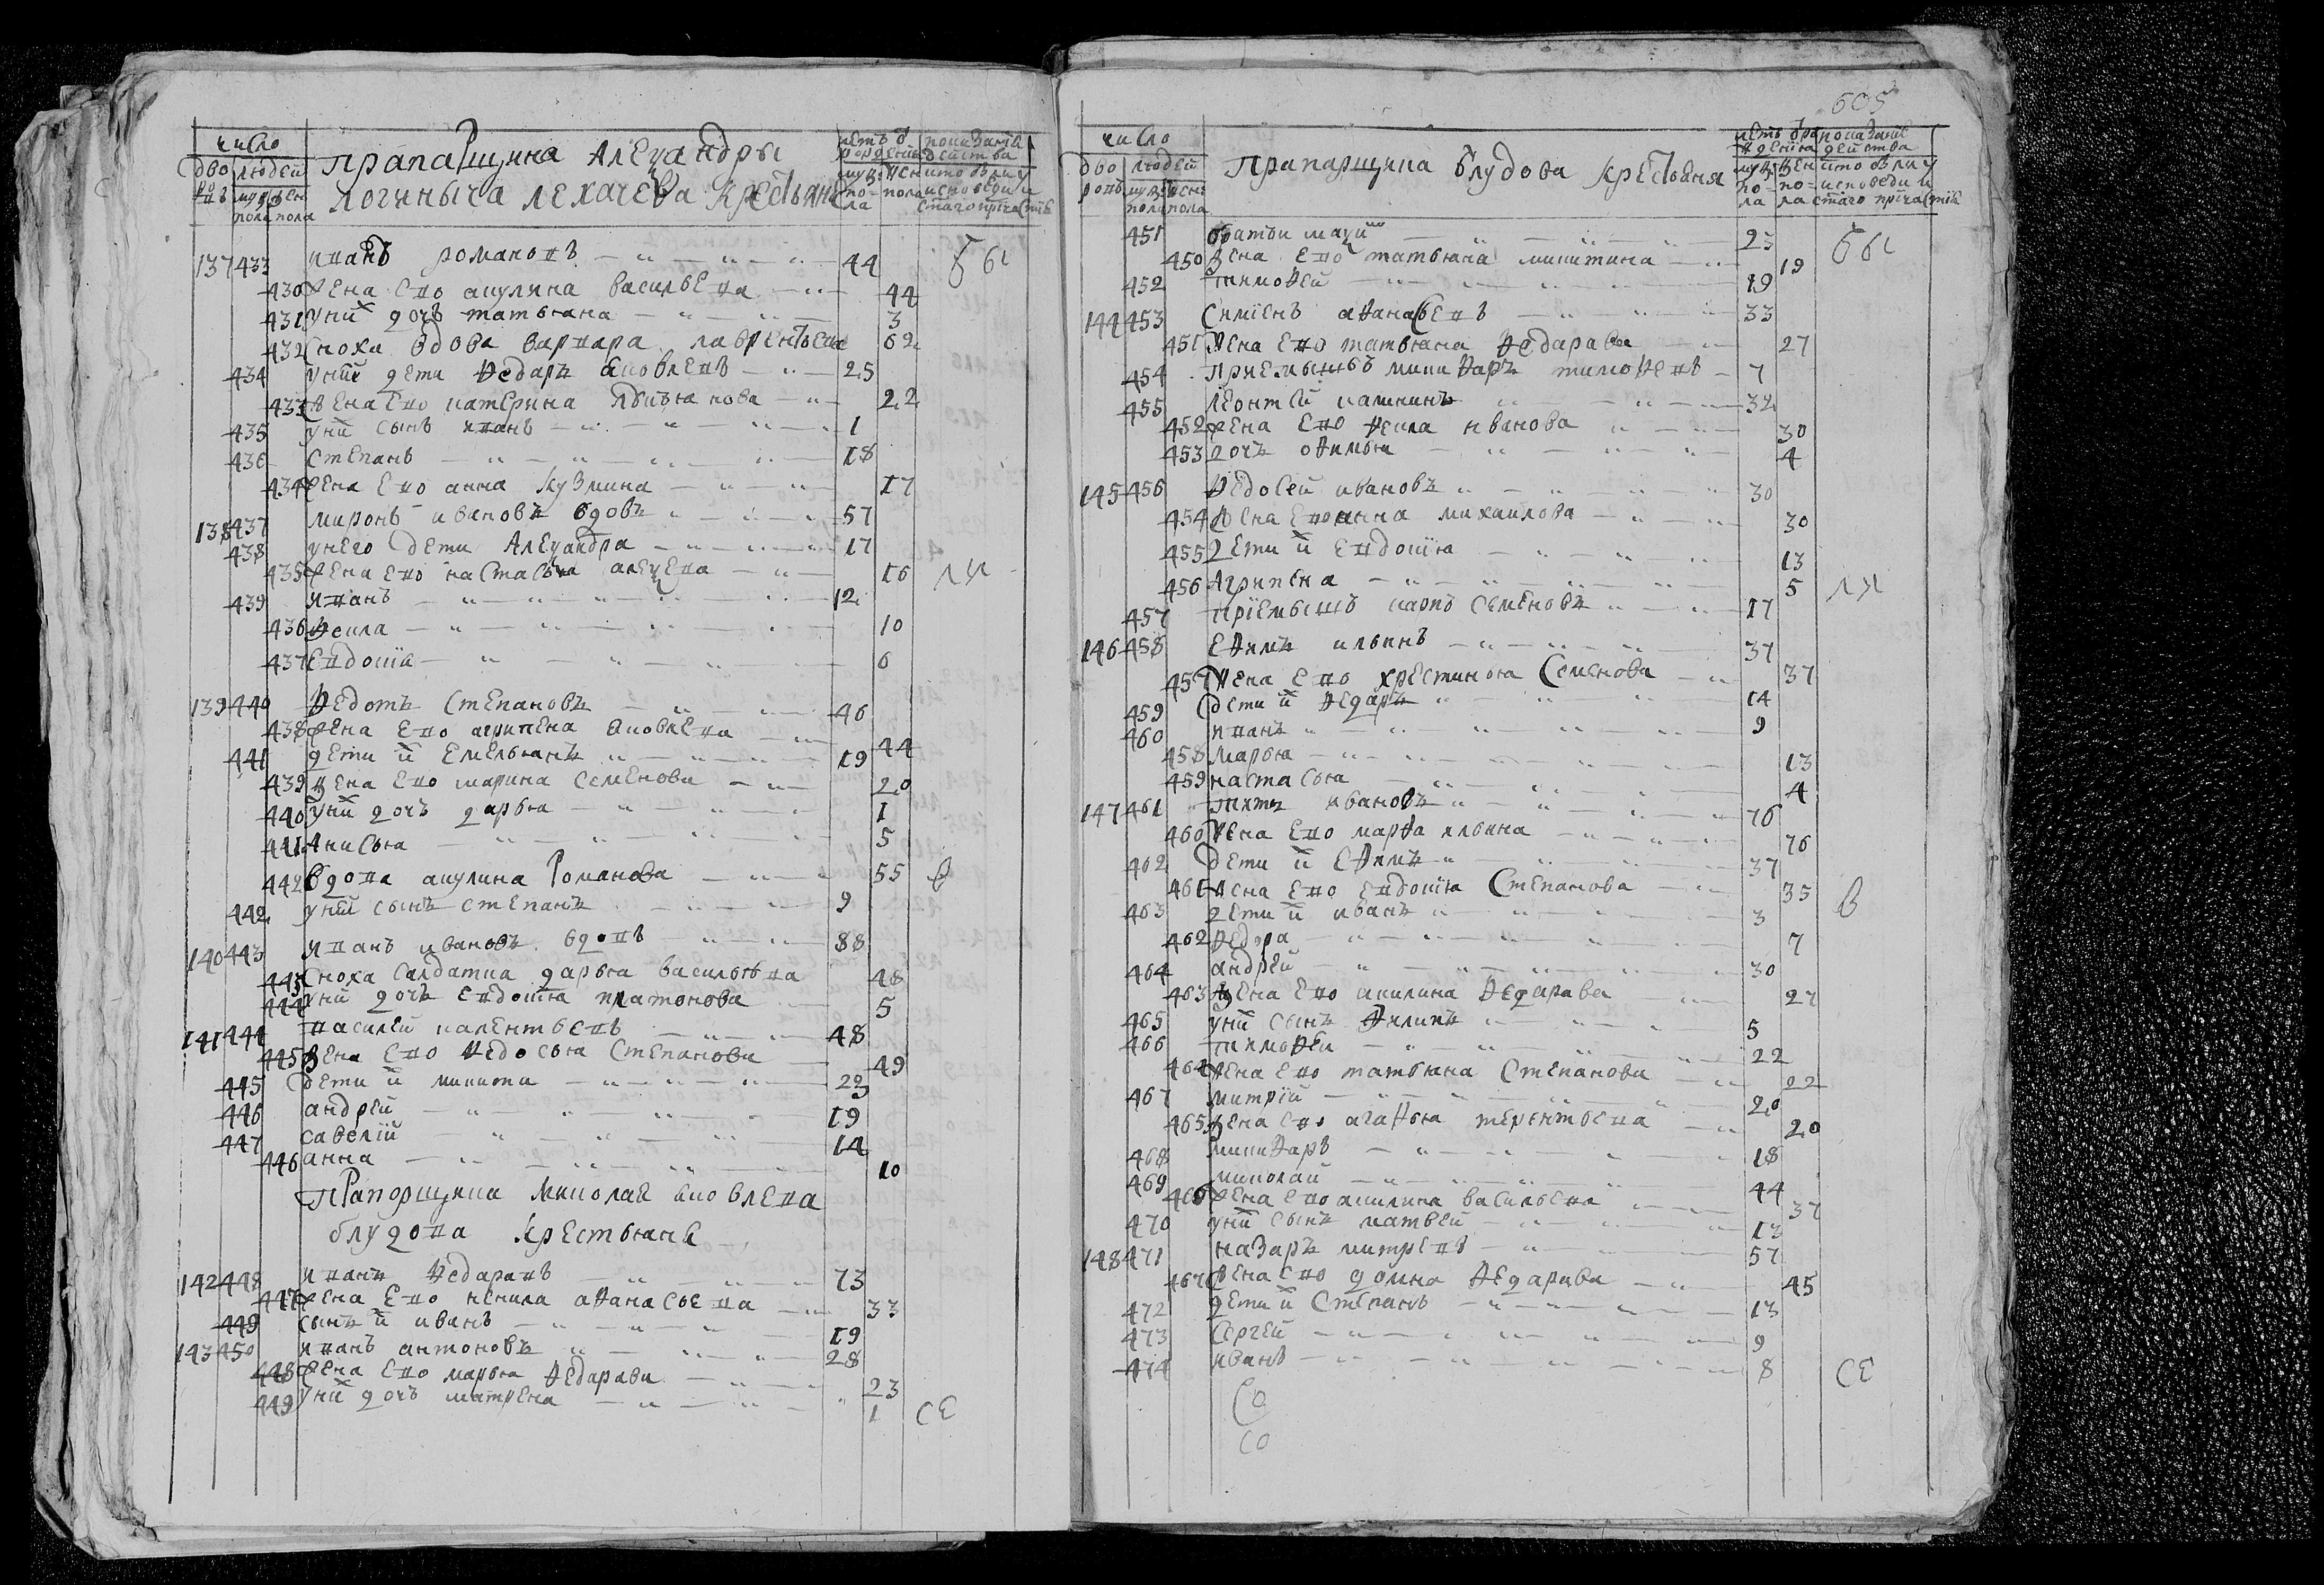 число
дворовъ
людей
муж пола
жен пола
Прапарщика Алеѯандры
Логиныча Лехачева крестьяне
летъ отъ рождения
муж. пола
жен пола
показание действа
кто были у исповеди и
стаго причастия
137 433 Иванъ Романовъ 44 бы
430 жена ево акулина васильева 44
431 у них дочъ татьяна 3
432 сноха вдова варвара лаврентьева 62
434 у ние дети Федаръ аковлевъ 25
433 жена ево катерина 22
435 у них сынъ иванъ 1
436 степанъ 18
434 жена ево анна кузмина 17
138 437 миронъ ивановъ вдовъ 57
438 у него дети Алеѯандра 17
435 жена ево настасья алеѯева 16 ли
439 иванъ 12
436 Фекла 10
437 Евдокия 6
139 440 Федотъ Степановъ 46
438 жена ево агрипена аковлева 44
441 дети их Емельянъ 19
439 жена ево марина семенова 20
440 у них дочъ дарья 1
441 Анисья 5
442 вдова акулина Романова 55 в
442 у ней сынъ степанъ 9
140 443 иванъ ивановъ вдовъ 88
443 сноха салдатка дарья васильева 48
444 у ней дочъ Евдокия платонова 5
141 444 василей калентьевъ 48
445 жена ево Федосья Степанова 49
445 дети их микита 23
446 андрей 19
447 савелий 14
446 анна 10
Прапорщика Николае аковлева
блудова крестьяне
142 448 иванъ Федаравъ 73
447 жена ево ненила аѳанасьева 33
449 сынъ их иванъ 19
143 450 иванъ антоновъ 28
448 жена ево марья Федарава 23
449 у них дочъ матрена 1 се
605
число
дворовъ
людей
муж пола
жен пола
Прапарщика Блудова крестьяня
летъ от рождения
муж. пола
жен. пола
показание действа
кто были у исповеди и
стаго причастия
451 братъи маѯим 23 бы
450 жена ево татьяна микитина 19
452 тимоѳей 19
144 453 Симиенъ аѳанасевъ 33
451 жена ево татьяна Федарава 27
454 приемышъ микиѳаръ тимоѳевъ 7
455 леонтей калининъ 32
452 жена ево Фекла иванова 30
453 дочъ оѳимья 4
145 456 Федосей ивановъ 30
454 жена ево анна михаилова 30
455 дети их Евдокия 13
456 Агрипена 5 ли
457 приемышъ карпъ семеновъ 17
146 458 Еѳимъ ильинъ 37
457 жена ево хрестинья Семенова 37
459 дети их Федаръ 14
460 иванъ 9
458 марья 13
459 настасья 4
147 461 титъ ивановъ 76
460 жена ево марѳа ильина 76
462 дети их Еѳимъ 37
461 жена ево евдокия Степанова 35
463 дети их иванъ 3 в
462 Федора 7
464 андрей 30
463 жена ево акилина Федарава 27
465 у них сынъ Филипъ 5
466 тимоѳей 22
464 жена ево татьяна Степанова 22
467 митрий 20
465 жена ево агаѳья терентьева 20
468 микиѳаръ 18
469 миколай 44
466 жена ево акилина васильева 37
470 у них сынъ матвей 13
148 471 назаръ митревъ 57
467 жена ево домна Федарава 45
472 дети их Степанъ 13
473 Сергей 9
474 иванъ 8 се
Со
со